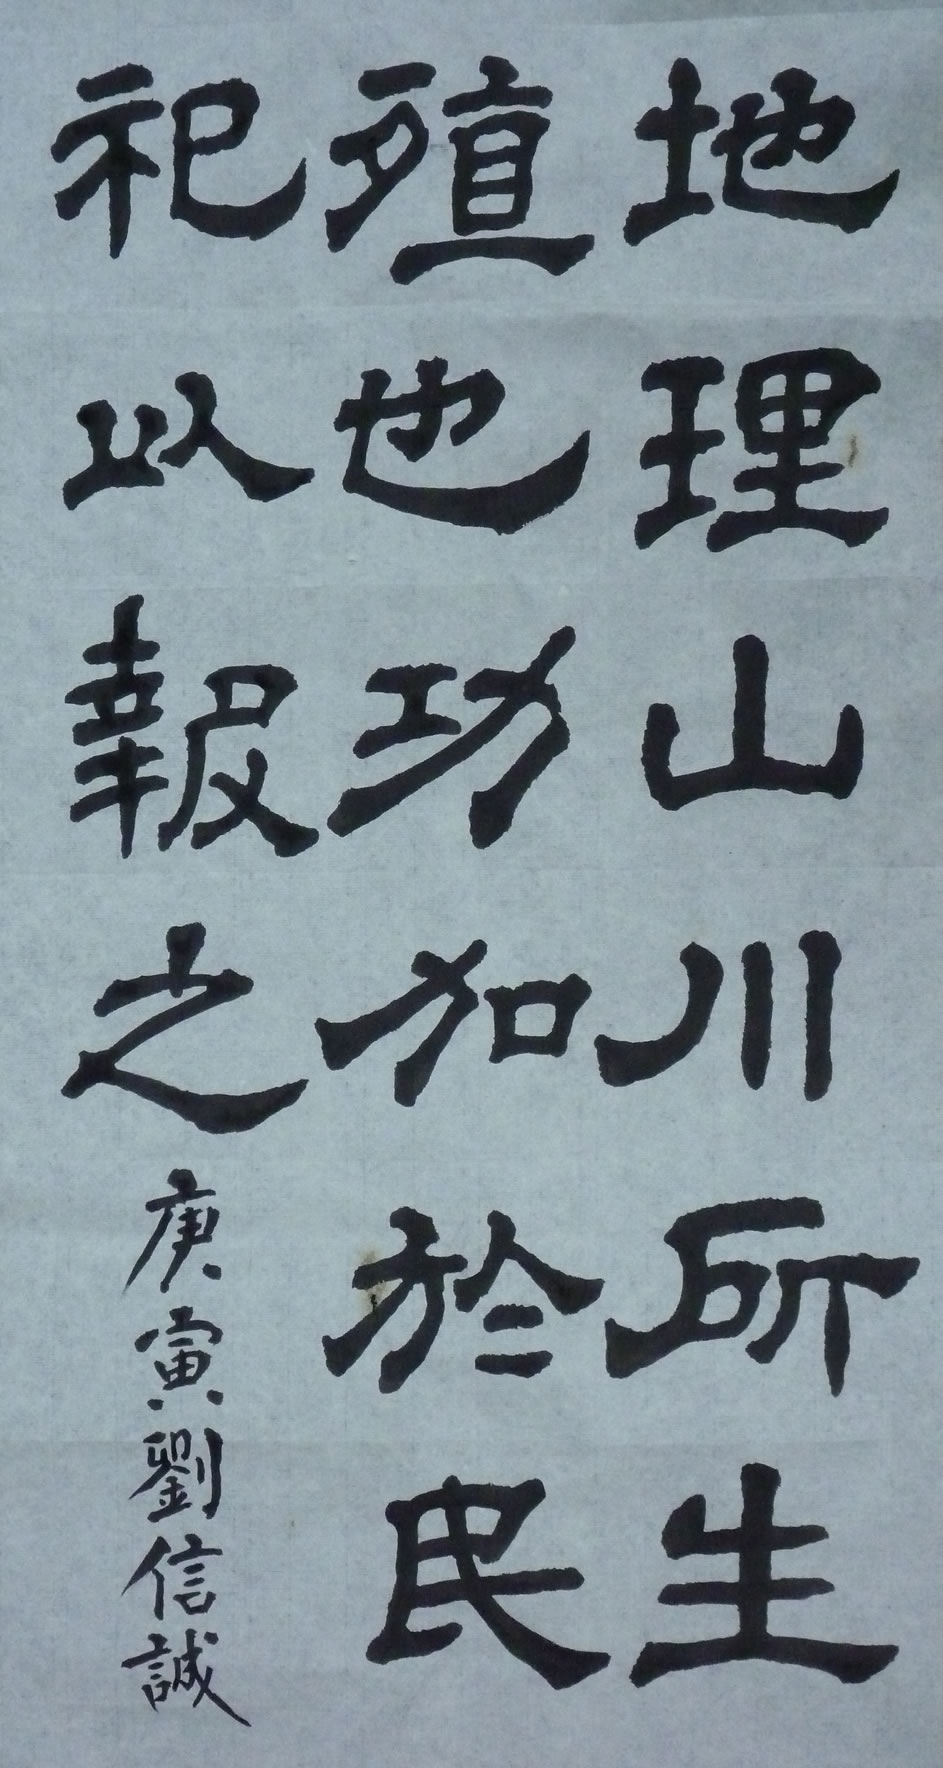 地理山川所生
殖也功加於民
祀以報之
庚寅劉信誠